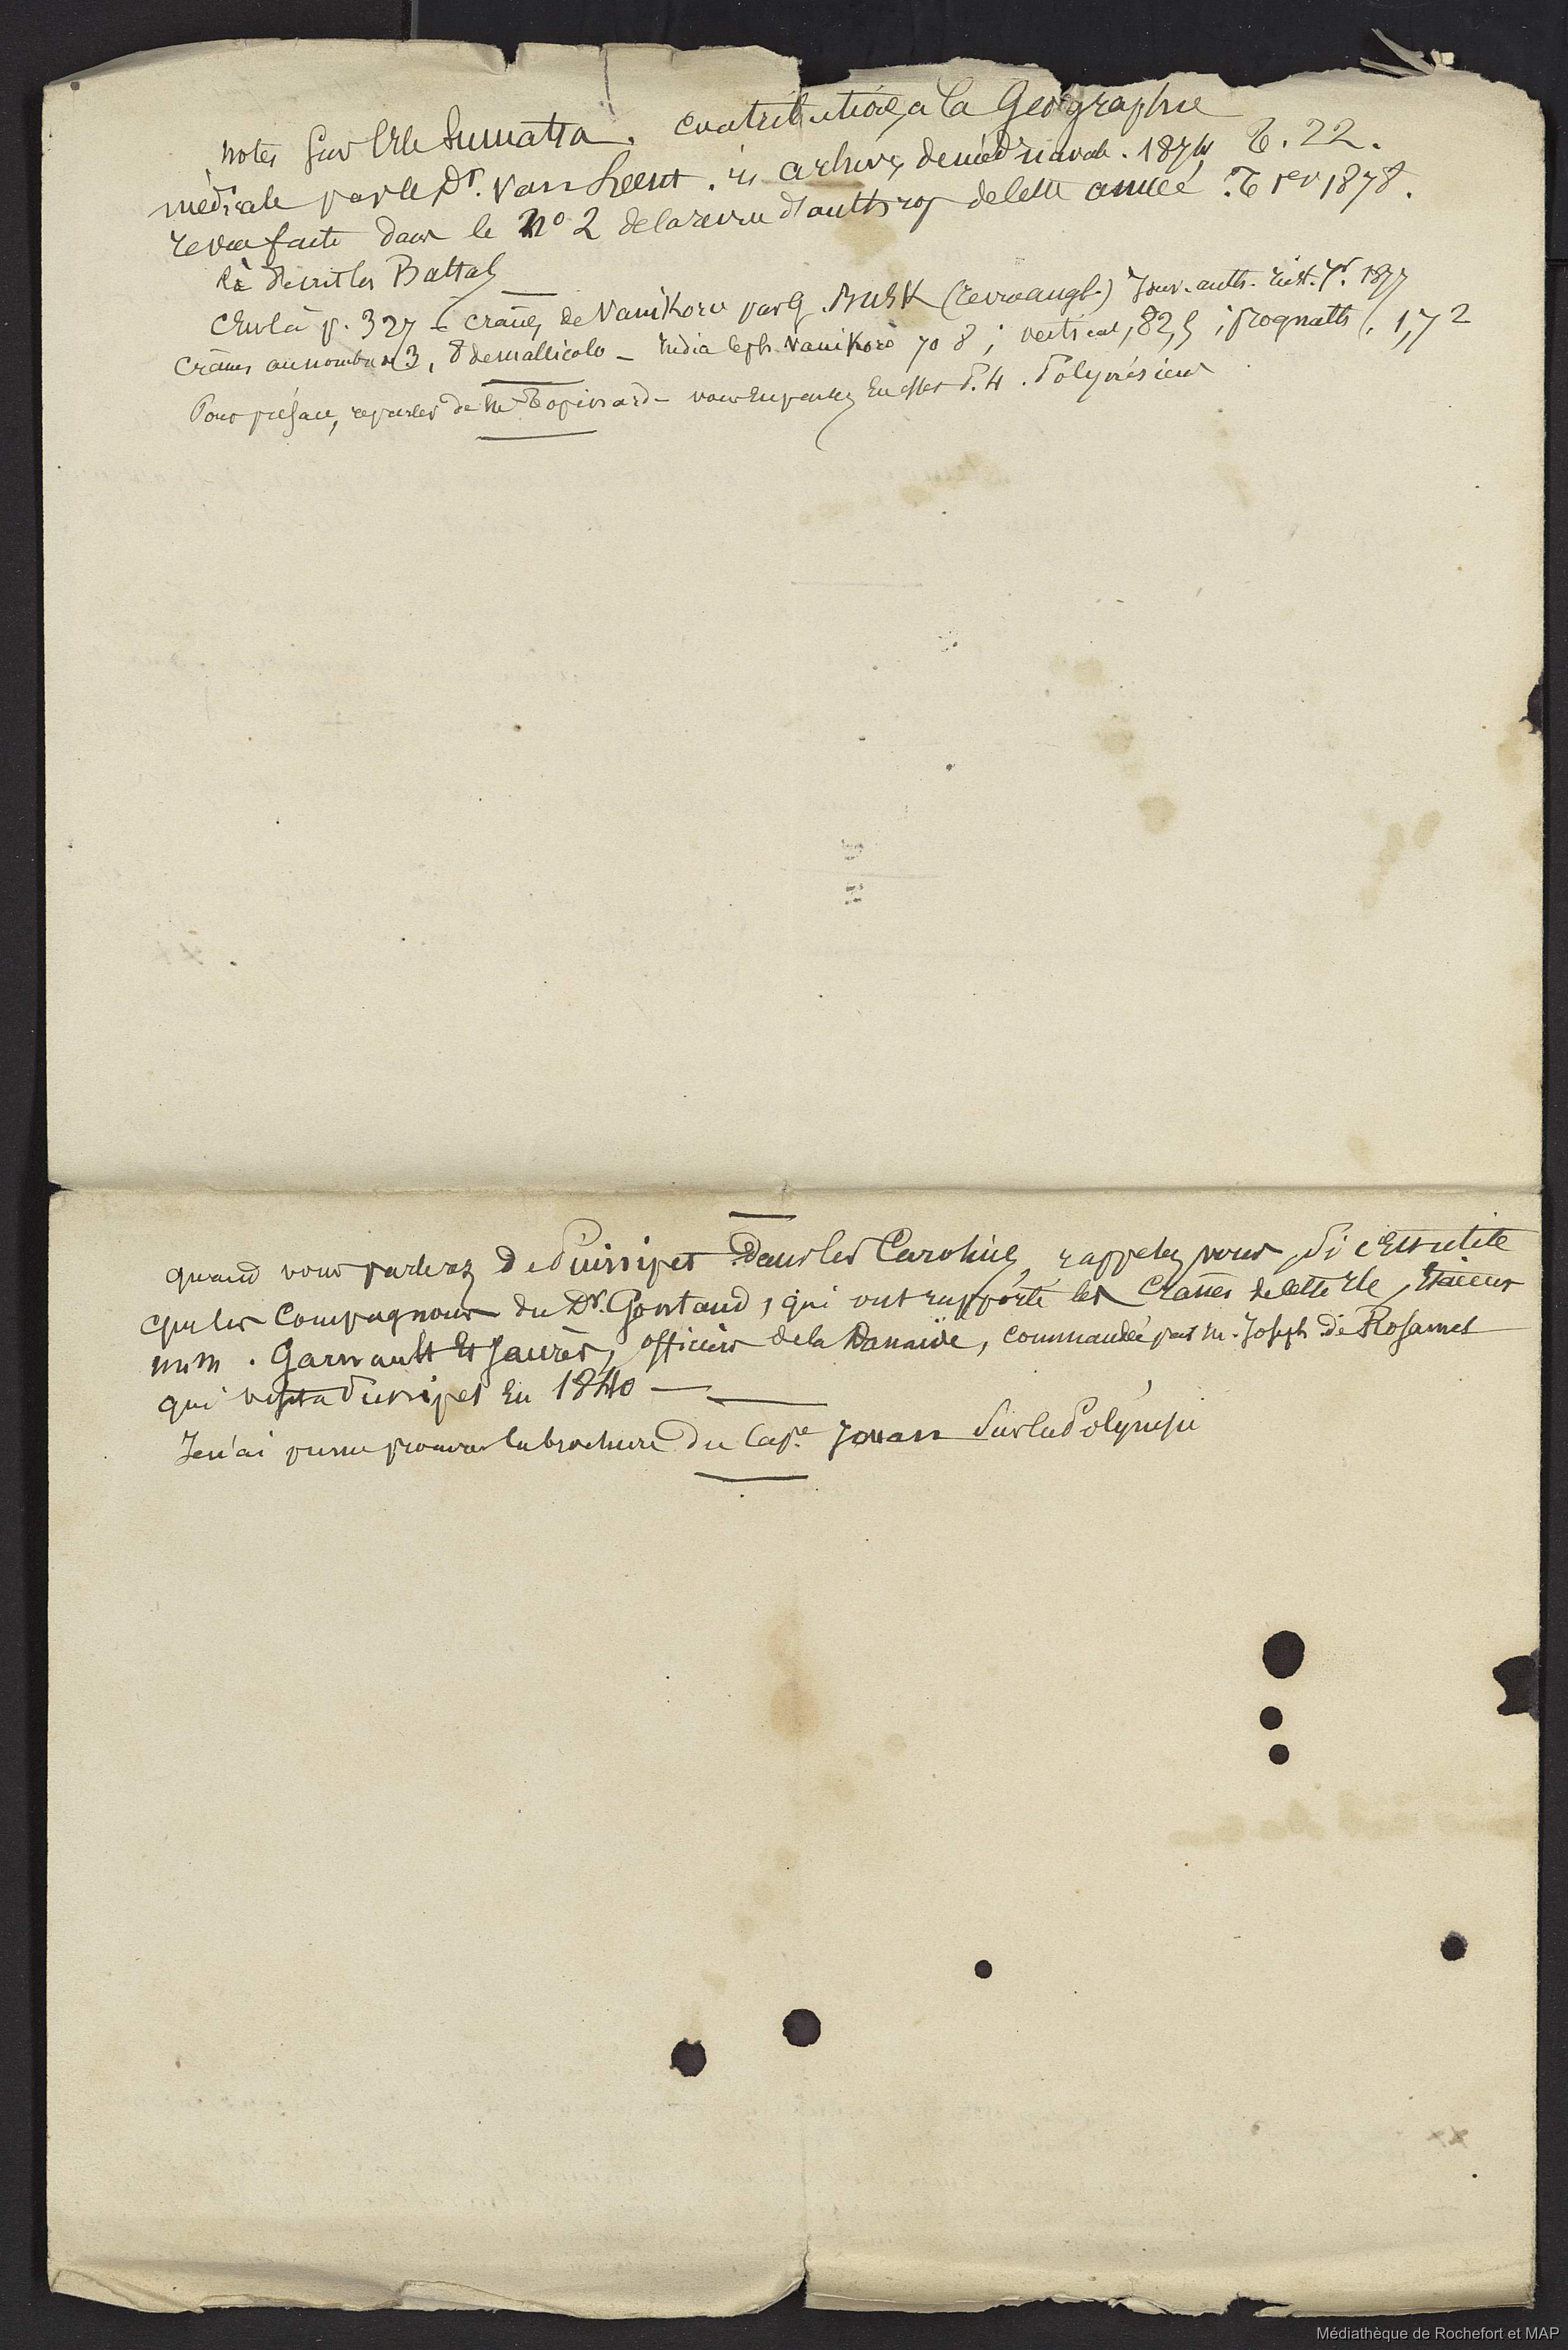 notes sur l'Ile Sumatra. contribution a la Géographie
médicale par le Dr. Van Leent. in archives de méd navale. 1874 T. 22.
revue faite dans le No 2 de la revue d'anthrop de cette année. T 1er 1878.
là décrit les Battas
c'est là p. 327 - crânes de Vanikoro par G. BUSK (revue angl.) Jour. anth. inst. Jr. 1877
crânes au nombre 3, 8 de mallicolo - india ceph Vanikoro 70 8 ; vertical, 82,5 ; prognath 1,72
Pour préface, reparler de Mr Topinard - vous en parlez en effet P. 4. Polynésiens
quand vous parlerez de Puinipet dans les Carolines, rappelez vous, si c'est utile
que les compagnons du Dr. Goutaud, qui ont rapporté les crânes de cette Ile, étaient
m.m. Garnault et Jaurès, officiers de la Danaïde, commandée par m. Joseph de Rosamel
qui visita Puinipet en 1840 —
Je n'ai pu me procurer la brochure du Cape Jouan sur la Polynésie
Médiathèque de Rochefort et MAP